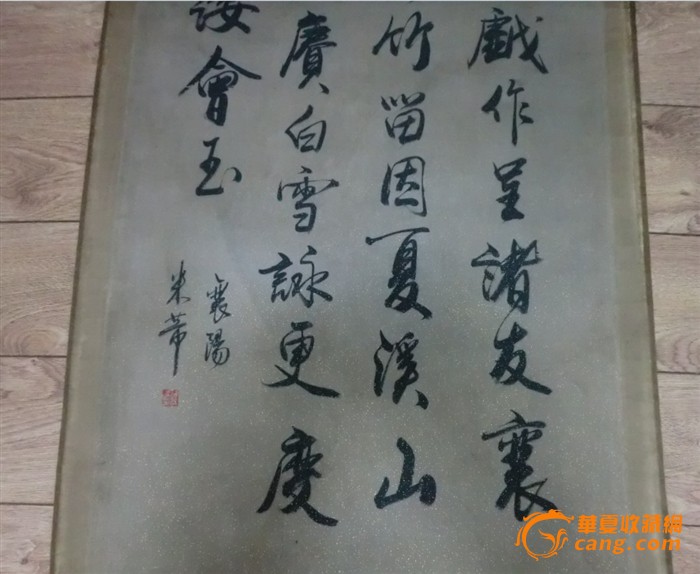 戲作呈諸友襄
竹留因夏溪山
賡白雪詠更度
會玉
襄陽
米芾
華夏收藏網
cang.com